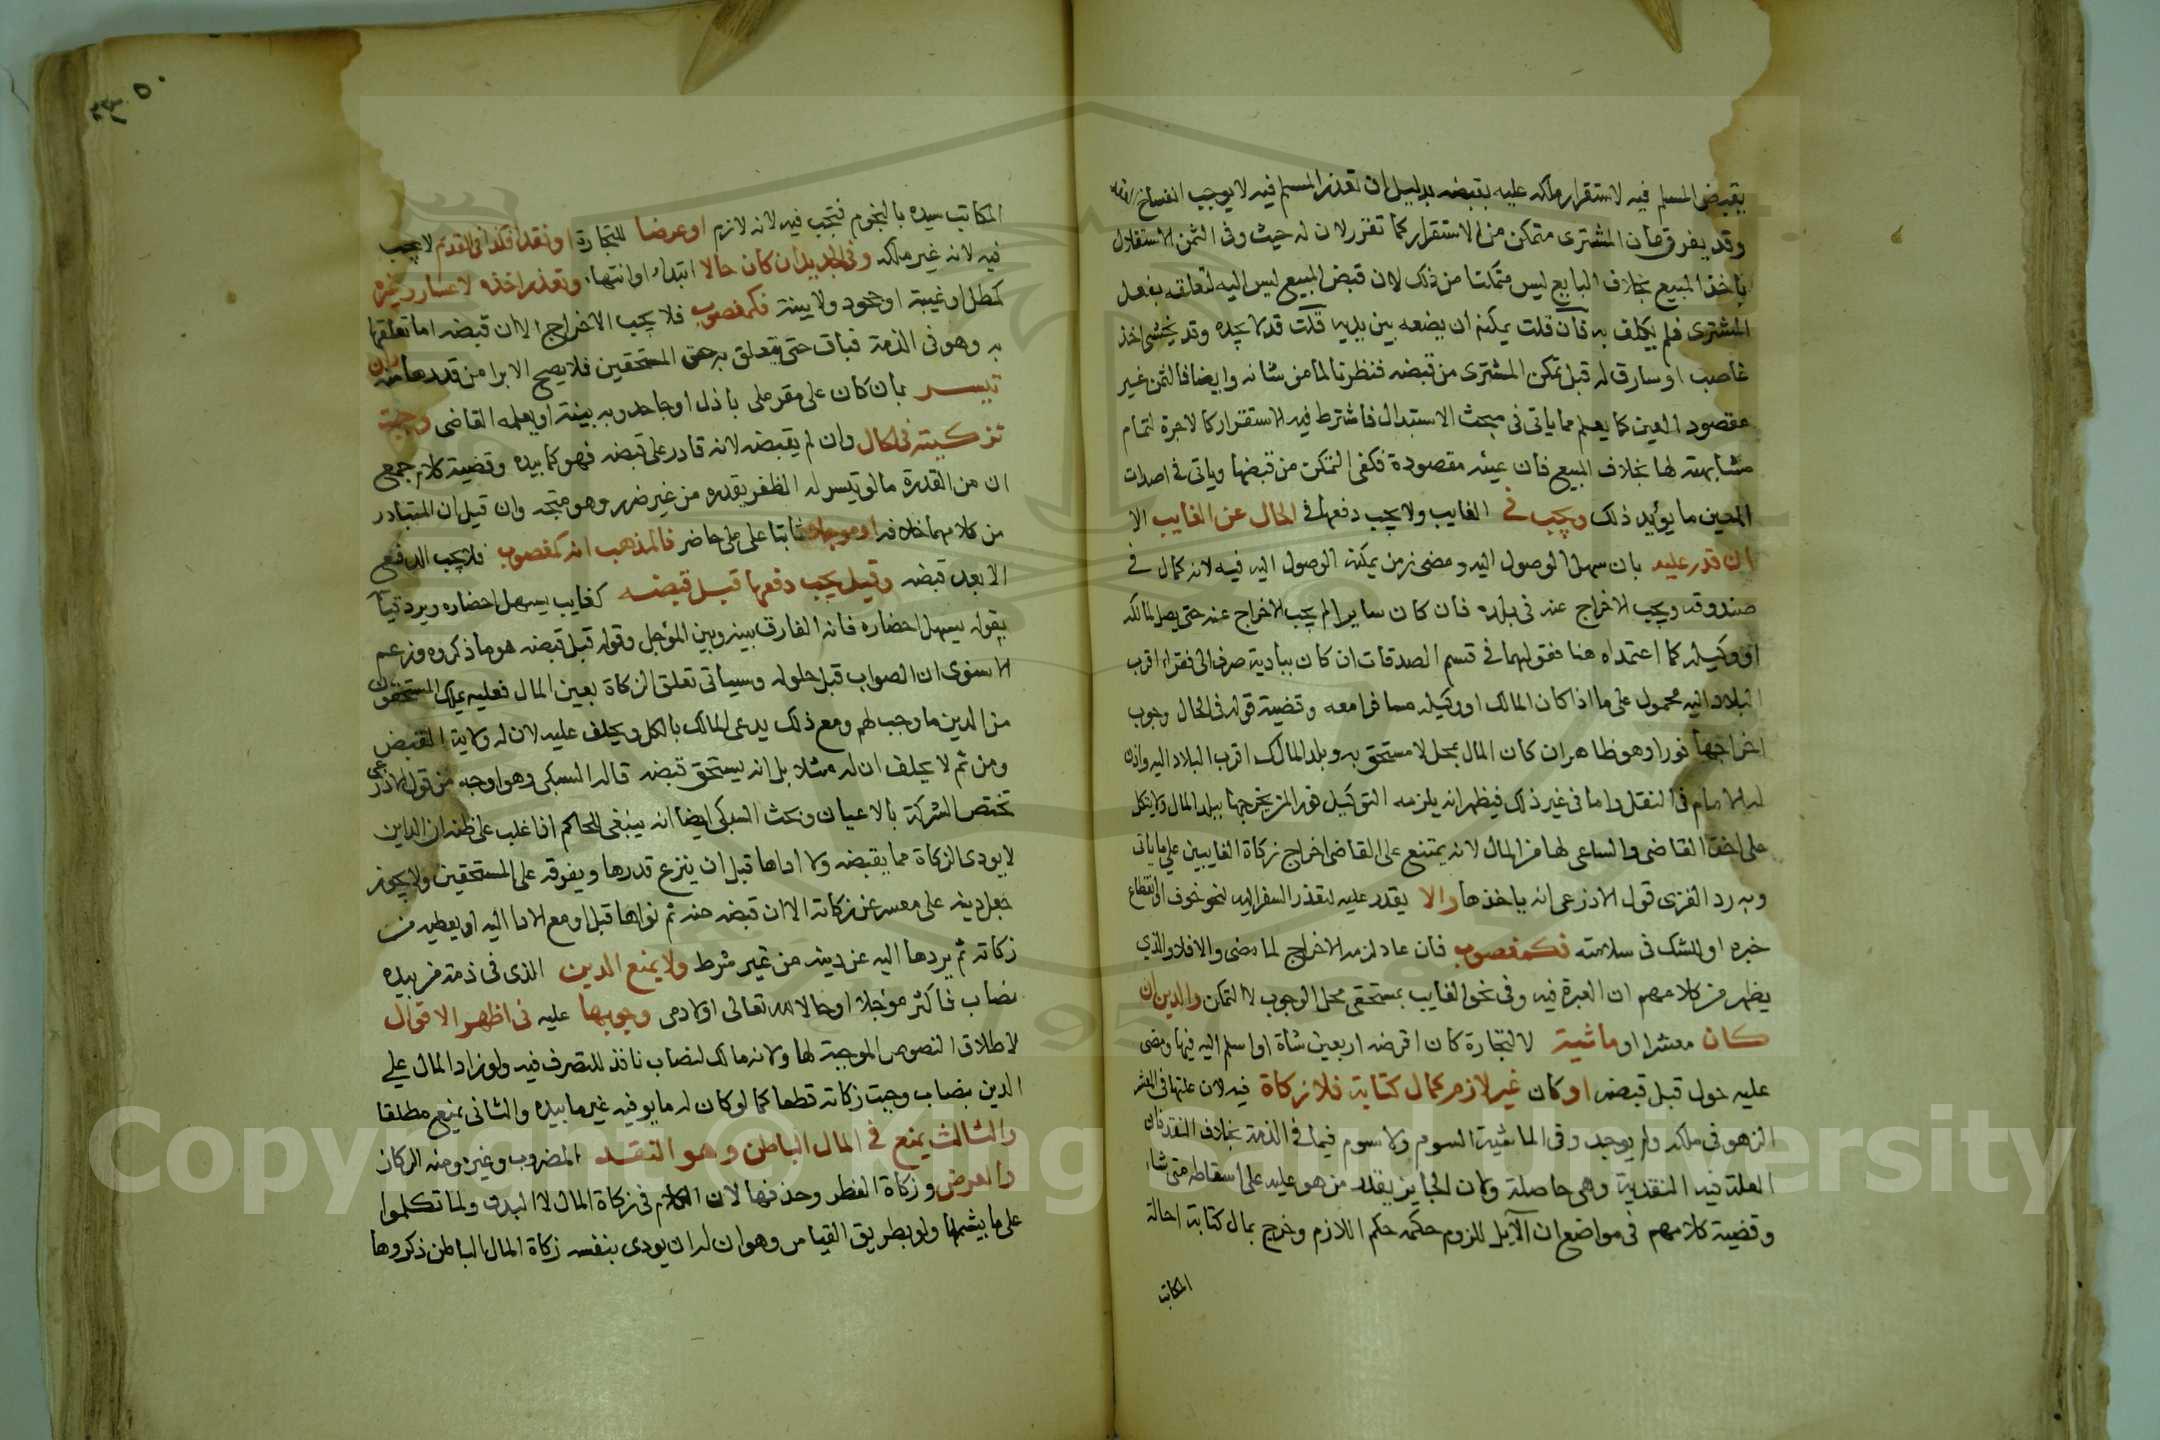 بقبض المسلم فيه لاستقرار ملكه عليه بقبضه بدليل ان تعذر المسلم فيه لا يوجب انفساخ
وقد يفرق بان المشتري متمكن من الاستقرار كما تقرر لان له حيث وفى الثمن الاستقلال
باخذ المبيع بخلاف البايع ليس متمكنا من ذلك لان قبض المبيع ليس اليه لتعلقه بفعل
المشتري فلم يكلف به فان قلت يمكنه ان يضعه بين يديه قلت قد لا يجده وقد يخشى اخذ
غاصب او سارق له قبل تمكن المشتري من قبضه فنظرنا لما من شانه وايضا فالثمن غير
مقصود العين كما يعلم مما ياتي في مبحث الاستبدال فاشترط فيه الاستقرار كالاجرة لتمام
مشابهته لها بخلاف المبيع فان عينه مقصودة فكفى التمكن من قبضها وياتي في اصداق
المعين ما يؤيد ذلك وتجب في الغايب ولا يجب دفعها في الحال عن الغايب الا
ان قدر عليه بان سهل الوصول اليه ومضى زمن يمكنه الوصول اليه فيه لانه كمال في
صندوقه ويجب الاخراج عنه في بلده فان كان سايرا لم يجب الاخراج عنه حتى يصل لمالكه
او وكيله كما اعتمداه هنا فقولهما في قسم الصدقات ان كان ببادية صرف الى فقراء اقرب
البلاد اليه محمول على ما اذا كان المالك او وكيله مسافرا معه وقضية قوله في الحال وجوب
اخراجها فورا وهو ظاهر ان كان المال بمحل لا مستحق به وبلد المالك اقرب البلاد اليه واذن
له الامام في النقل واما في غير ذلك فيظهر انه يلزمه التوكيل فورا لمن يخرجها ببلد المال ولا يتكل
على اخذ القاضي والساعي لها من المال لانه يمتنع على القاضي اخراج زكاة الغايبين على ما ياتي
وبه رد الغزي قول الاذرعي انه ياخذها والا يقدر عليه لتعذر السفر اليه لنحو خوف او انقطاع
خبره او للشك في سلامته فكمغصوب فان عاد لزمه الاخراج لما مضى والا فلا والذي
يظهر من كلامهم ان العبرة فيه وفي نحو الغايب بمستحقي محل الوجوب لا التمكن والدين ان
كان معشرا او ماشية لا لتجارة كان اقرضه اربعين شاة او اسلم اليه فيها ومضى
عليه حول قبل قبضه او كان غير لازم كمال كتابة فلا زكاة فيه لان علتها في المعشر
الزهو في ملكه ولم يوجد وفي الماشية السوم ولا سوم فيما في الذمة بخلاف النقد فان
العلة فيه النقدية وهي حاصلة ولان الجايز يقدر من هو عليه على اسقاطه متى شاء
وقضية كلامهم في مواضع ان الآيل للزوم حكمه حكم اللازم وخرج بمال كتابة احالة
المكاتب
المكاتب سيده بالنجوم فتجب فيه لانه لازم او عرضا للتجارة او نقدا فكذا في القديم لا يجب
فيه لانه غير ملكه وفي الجديد ان كان حالا ابتداء او انتهاء وتعذر اخذه لاعسار وغيره
كمطل او غيبة او جحود ولا بينة فكمغصوب فلا يجب الاخراج الا ان قبضه اما تعلقها
به وهو في الذمة فباق حتى يتعلق به حق المستحقين فلا يصح الابرا من قدرها منه وان
تيسر بان كان على مقر ملي باذل او جاحد وبه بينة او يعلمه القاضي وجبت
تزكيته في الحال وان لم يقبضه لانه قادر على قبضه فهو كما بيده وقضية كلام جمع
ان من القدرة ما لو تيسر له الظفر بقدره من غير ضرر وهو متجه وان قيل ان المتبادر
من كلامهما خلافه او مؤجلا ثابتا على ملي حاضر فالمذهب انه كمغصوب فلا يجب الدفع
الا بعد قبضه وقيل يجب دفعها قبل قبضه كغايب يسهل احضاره ويرد قياسا
بقوله يسهل احضاره فانه الفارق بينه وبين المؤجل وقوله قبل قبضه هو ما ذكروه وزعم
الاسنوي ان الصواب قبل حلوله وسياتي تعلق الزكاة بعين المال فعليه يملك المستحقون
من الدين ما وجب لهم ومع ذلك يدعي المالك بالكل ويحلف عليه لان له ولاية القبض
ومن ثم لا يحلف ان له مثلا بل انه يستحق قبضه قاله السبكي وهو اوجه من قول الاذرعي
تختص الشركة بالاعيان وبحث السبكي ايضا انه ينبغي للحاكم اذا غلب على ظنه ان الداين
لا يودي الزكاة مما يقبضه ولا اداها قبل ان ينزع قدرها ويفرقه على المستحقين ولا يجوز
جعل دينه على معسر عن زكاته الا ان قبضه منه ثم نواها قبل او مع الادا اليه او يعطيه من
زكاته ثم يردها اليه عن دينه من غير شرط ولا يمنع الدين الذي في ذمة من بيده
نصاب فاكثر مؤجلا او حالا لله تعالى او لادمي وجوبها عليه في اظهر الاقوال
لاطلاق النصوص الموجبة لها ولانه مالك لنصاب نافذ للتصرف فيه ولو زاد المال على
الدين بنصاب وجبت زكاته قطعا كما لو كان له ما يوفيه غير ما بيده والثاني يمنع مطلقا
والثالث يمنع في المال الباطن وهو النقد المضروب وغيره ومنه الركاز
والعرض وزكاة الفطر وحذفها لان الكلام في زكاة المال لا البدن ولما تكلموا
على ما يشملها ولو بطريق القياس وهو ان له ان يودي بنفسه زكاة المال الباطن ذكروها
Copyright © King Saud University